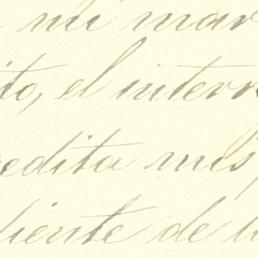 mi mar
ito, el interr
edita mis
diente de l